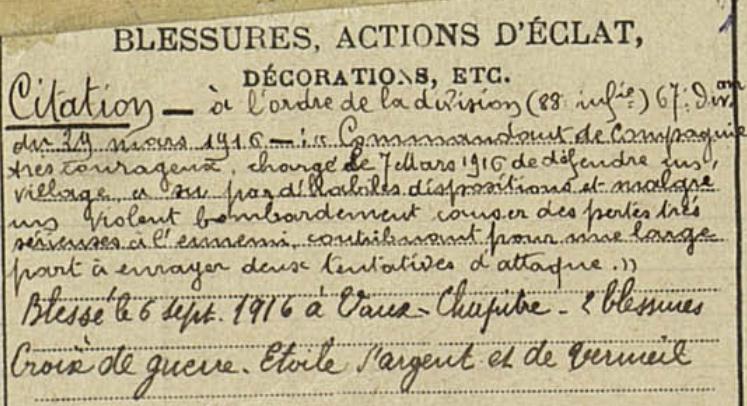 BLESSURES, ACTIONS D'ÉCLAT,
DÉCORATIONS, ETC.
Citation — à l'ordre de la division (88 infie) 67: Don
du 29 mars 1916 —: « Commandant de Compagnie
très courageux, chargé le 7 Mars 1916 de défendre un
village, a su par d'habiles dispositions et malgré
un violent bombardement causer des pertes très
sérieuses à l'ennemi, contribuant pour une large
part à enrayer deux tentatives d'attaque. »
Blessé le 6 sept. 1916 à Vaux-Chapitre - 2 blessures
Croix de guerre. Etoile d'argent et de vermeil